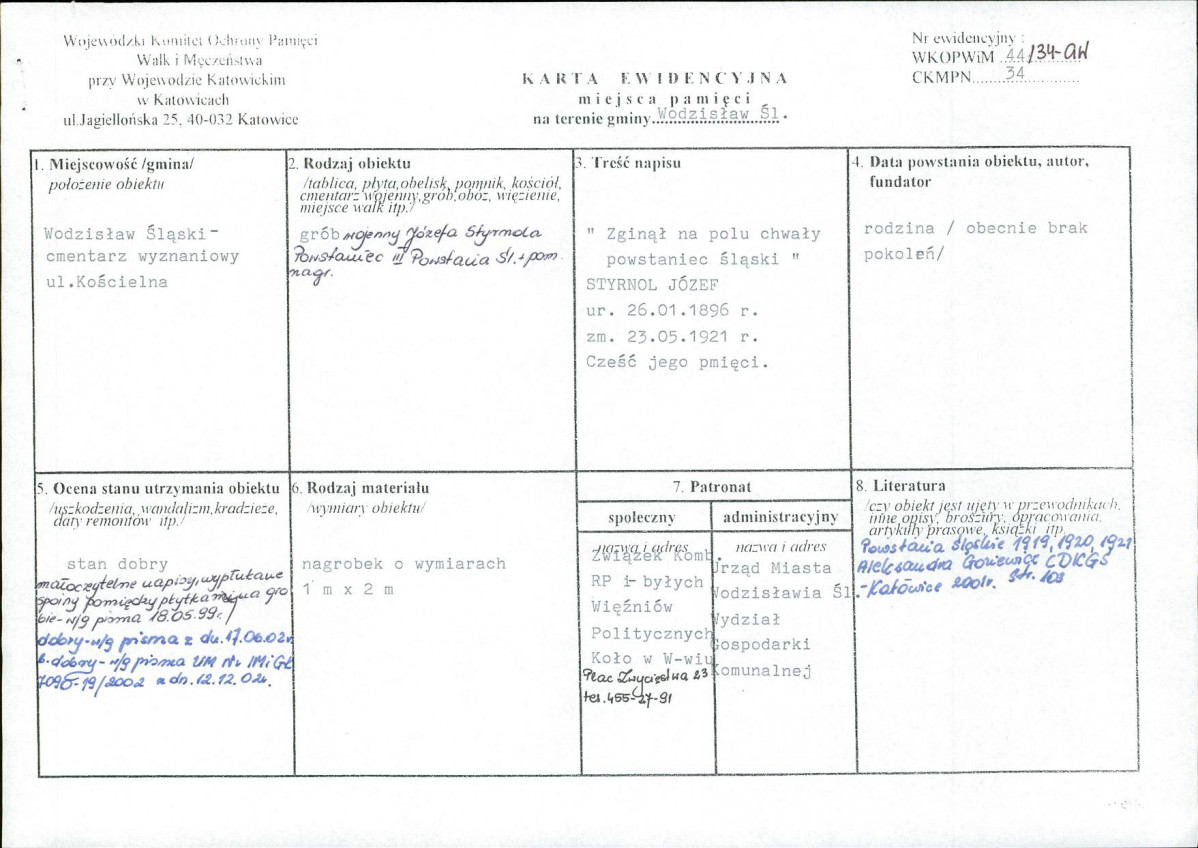 Wojewódzki Komitet Ochrony Pamięci
Walk i Męczeństwa
przy Wojewodzie Katowickim
w Katowicach
ul.Jagiellońska 25, 40-032 Katowice
KARTA EWIDENCYJNA
miejsca pamięci
na terenie gminy Wodzisław Śl.
Nr ewidencyjny :
WKOPWiM 44/34-GW
CKMPN 34
1. Miejscowość /gmina/
położenie obiektu
Wodzisław Śląski-
cmentarz wyznaniowy
ul.Kościelna
2. Rodzaj obiektu
/tablica, płyta,obelisk, pomnik, kościół,
cmentarz wojenny,grób,obóz, więzienie,
miejsce walk itp./
grób wojenny Józefa Styrnola
Powstaniec III Powstania Śl. + pom.
nagr.
3. Treść napisu
" Zginął na polu chwały
powstaniec śląski "
STYRNOL JÓZEF
ur. 26.01.1896 r.
zm. 23.05.1921 r.
Cześć jego pmięci.
4. Data powstania obiektu, autor,
fundator
rodzina / obecnie brak
pokoleń/
5. Ocena stanu utrzymania obiektu
/uszkodzenia, wandalizm,kradzieże,
daty remontów itp./
stan dobry
małoczytelne napisy, wypłukane
spoiny pomiędzy płytkami na gro
bie - w/g pisma 18.05.99r./
dobry - w/g pisma z dn. 17.06.02r
b. dobry - w/g pisma UM Nr IMiGK
7090-19/2002 z dn. 12.12.02r.
6. Rodzaj materiału
/wymiary obiektu/
nagrobek o wymiarach
1 m x 2 m
7. Patronat
społeczny
nazwa i adres
Związek Komb.
RP i byłych
Więźniów
Politycznych
Koło w W-wiu
Plac Zwycięstwa 23
tel. 455-27-91
administracyjny
nazwa i adres
Urząd Miasta
Wodzisławia Śl.
Wydział
Gospodarki
Komunalnej
8. Literatura
/czy obiekt jest ujęty w przewodnikach,
inne opisy, broszury, opracowania,
artykuły prasowe, książki itp.
Powstania Śląskie 1919, 1920, 1921
Aleksandra Goniewicz CDKGŚ
- Katowice 2001r. Str. 103